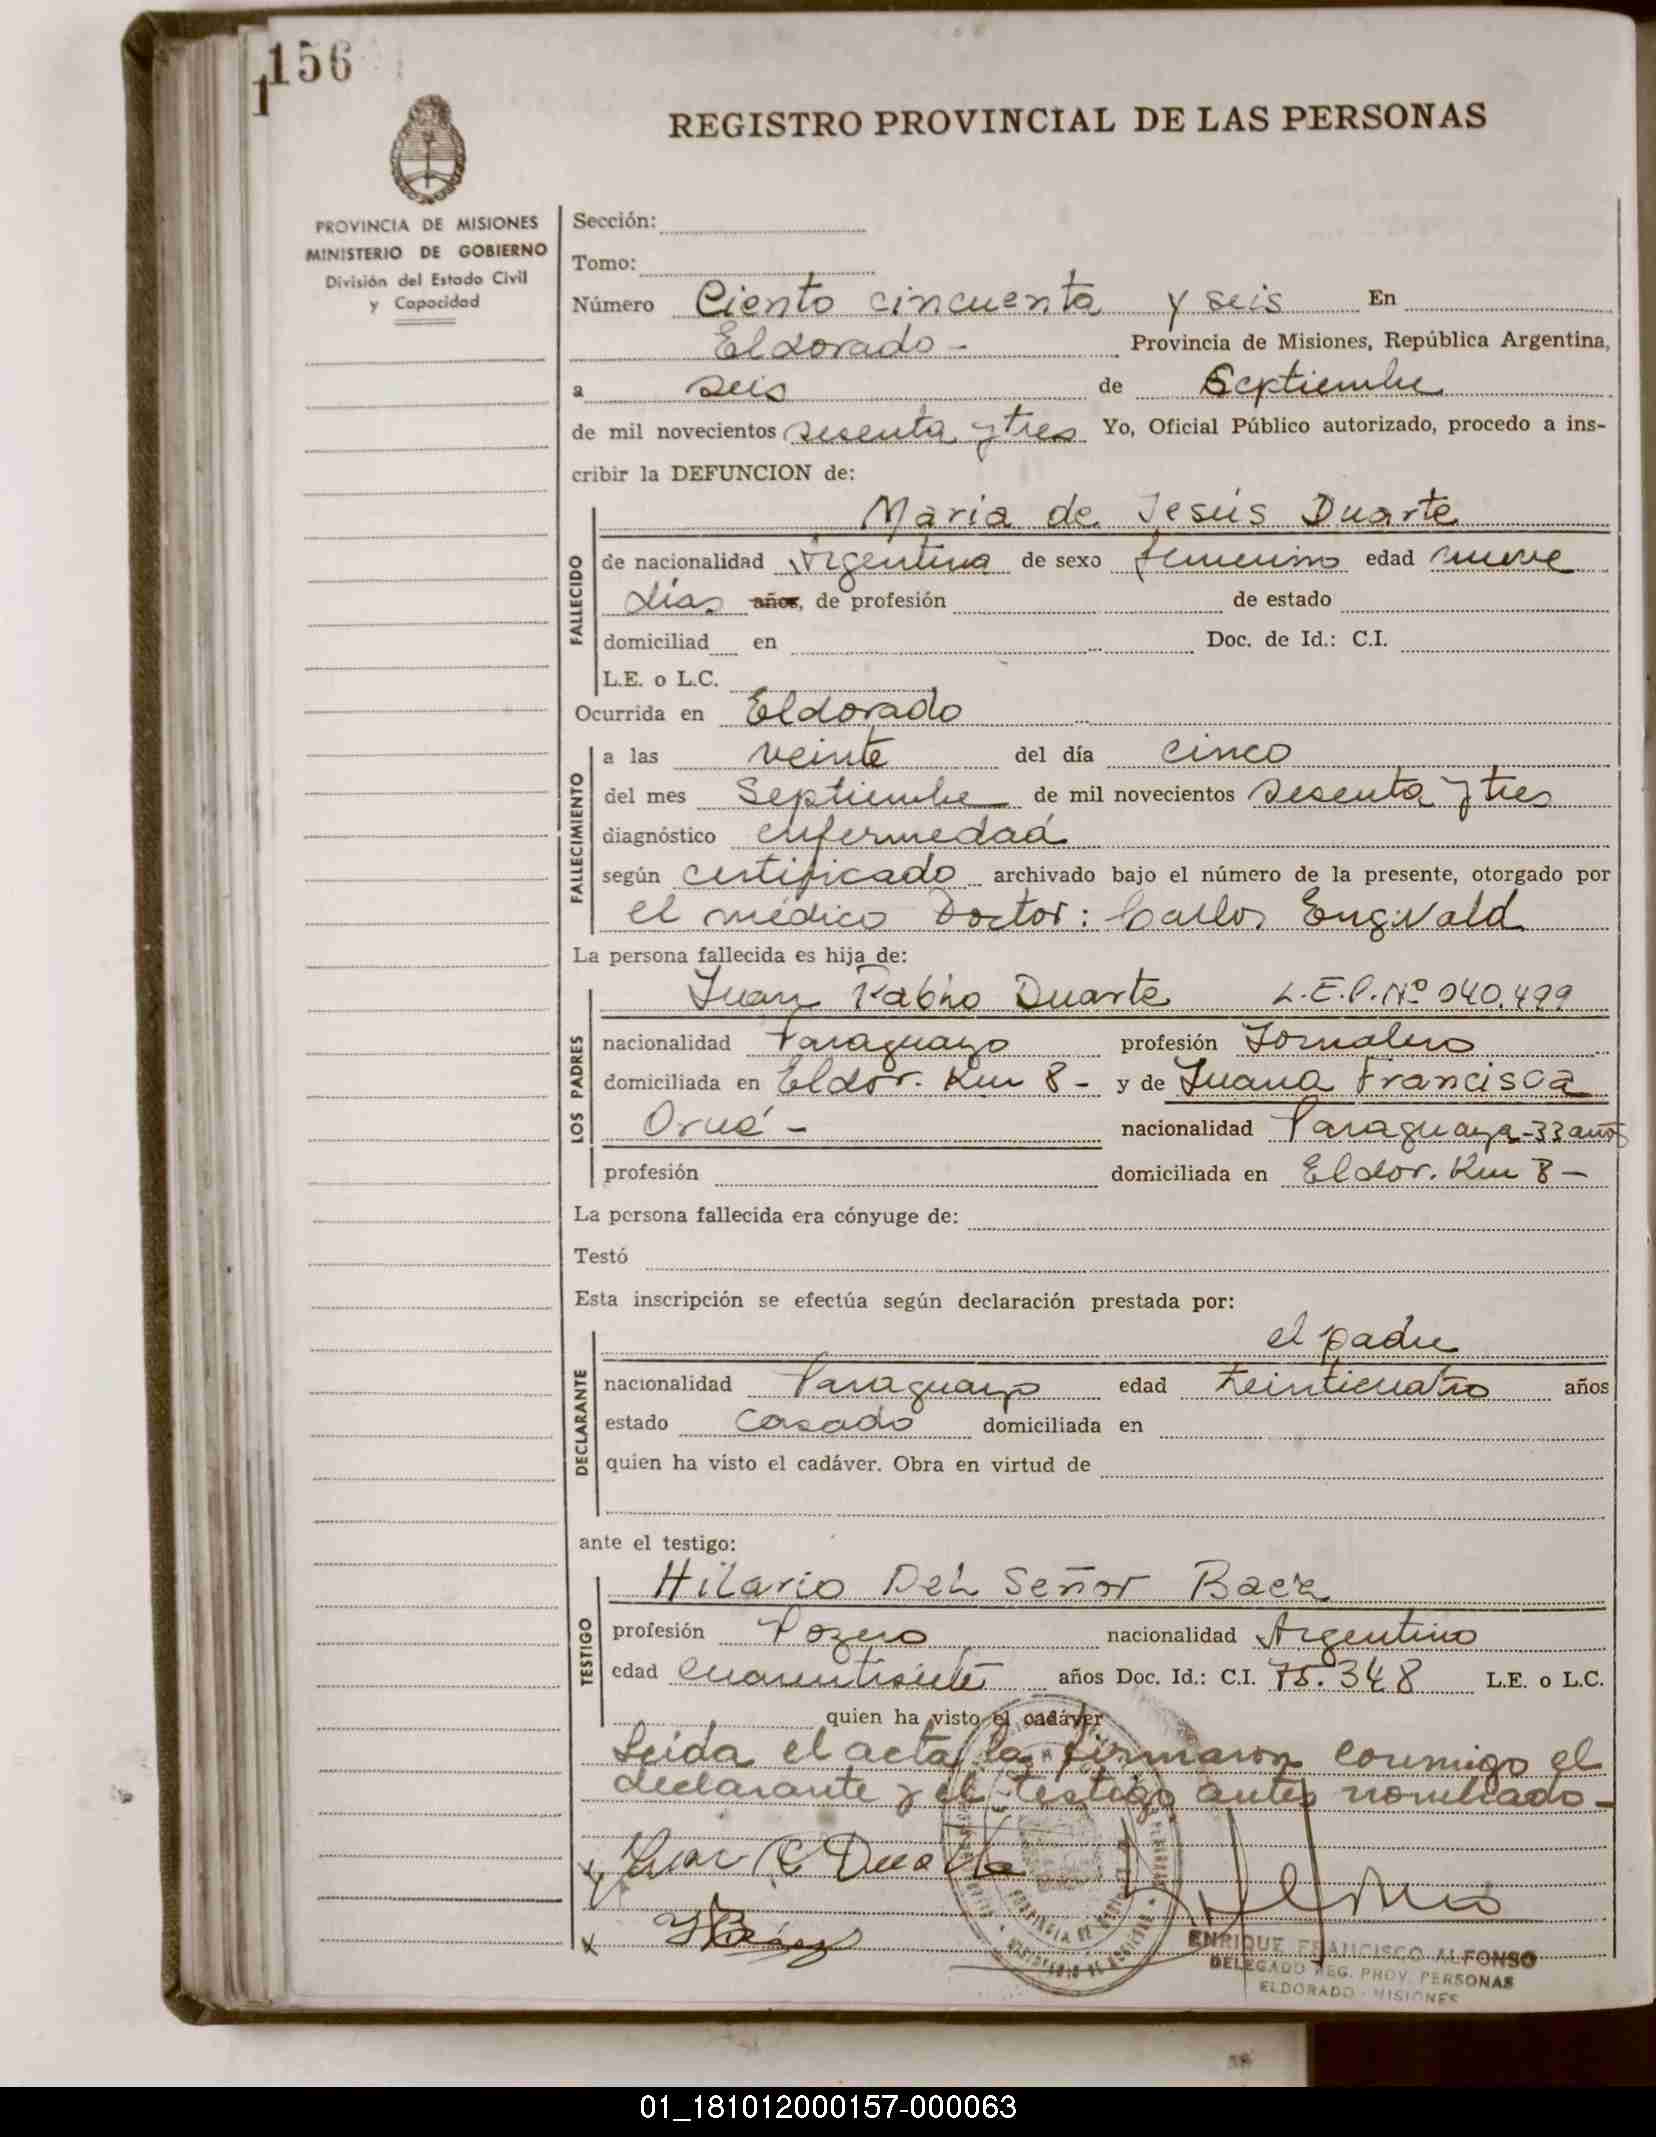 156
1
REGISTRO PROVINCIAL DE LAS PERSONAS
PROVINCIA DE MISIONES
MINISTERIO DE GOBIERNO
División del Estado Civil
y Capacidad
Sección:
Tomo:
Número Ciento cincuenta y seis En
Eldorado - Provincia de Misiones, República Argentina,
a seis de Septiembre
de mil novecientos sesenta y tres Yo, Oficial Público autorizado, procedo a ins-
cribir la DEFUNCION de:
FALLECIDO
Maria de Jesús Duarte
de nacionalidad Argentina de sexo femenino edad nueve
días años, de profesión de estado
domiciliad en Doc. de Id.: C.I.
L.E. o L.C.
Ocurrida en Eldorado
FALLECIMIENTO
a las veinte del día cinco
del mes Septiembre de mil novecientos sesenta y tres
diagnóstico enfermedad
según certificado archivado bajo el número de la presente, otorgado por
el médico Doctor: Carlos Engwald
La persona fallecida es hija de:
LOS PADRES
Juan Pablo Duarte L.E.P.Nº 040.499
nacionalidad Paraguayo profesión Jornalero
domiciliada en Eldor. Km 8 - y de Juana Francisca
Orué - nacionalidad Paraguaya - 33 años
profesión domiciliada en Eldor. Km 8 -
La persona fallecida era cónyuge de:
Testó
Esta inscripción se efectúa según declaración prestada por:
DECLARANTE
el padre
nacionalidad Paraguayo edad treinticuatro años
estado Casado domiciliada en
quien ha visto el cadáver. Obra en virtud de
ante el testigo:
TESTIGO
Hilario Del Señor Baez
profesión Pozero nacionalidad Argentino
edad cuarentisiete años Doc. Id.: C.I. 75.348 L.E. o L.C.
quien ha visto el cadáver
Leida el acta la firmaron conmigo el
declarante y el testigo antes nombrado -
x Juan P Duarte
x H Báez
ENRIQUE FRANCISCO ALFONSO
DELEGADO REG. PROV. PERSONAS
ELDORADO - MISIONES
01_181012000157-000063